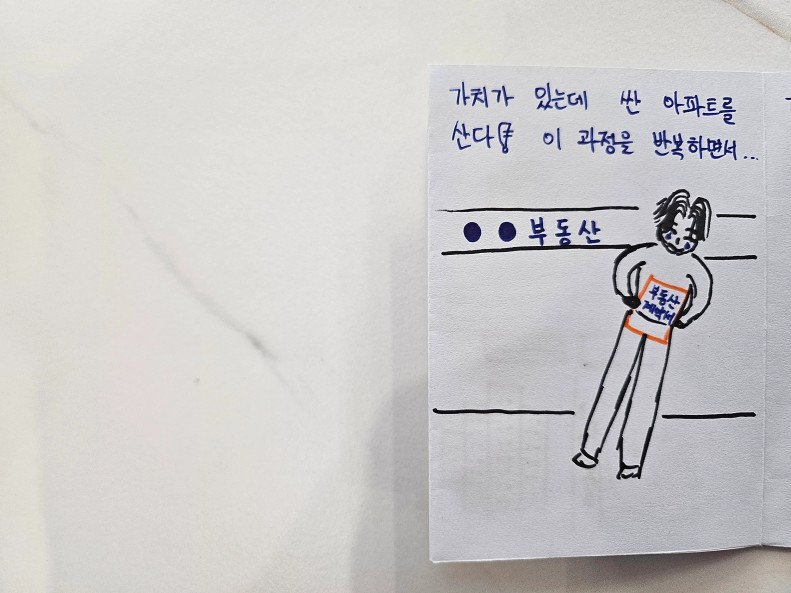 가치가 있는데 싼 아파트를
산다 이 과정을 반복하면서...
●● 부동산
부동산
계약서